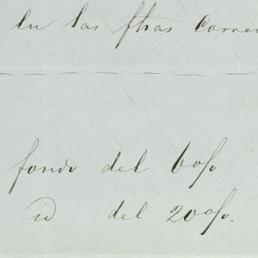 en las fhas corre
fondo del 60%
id del 20%.